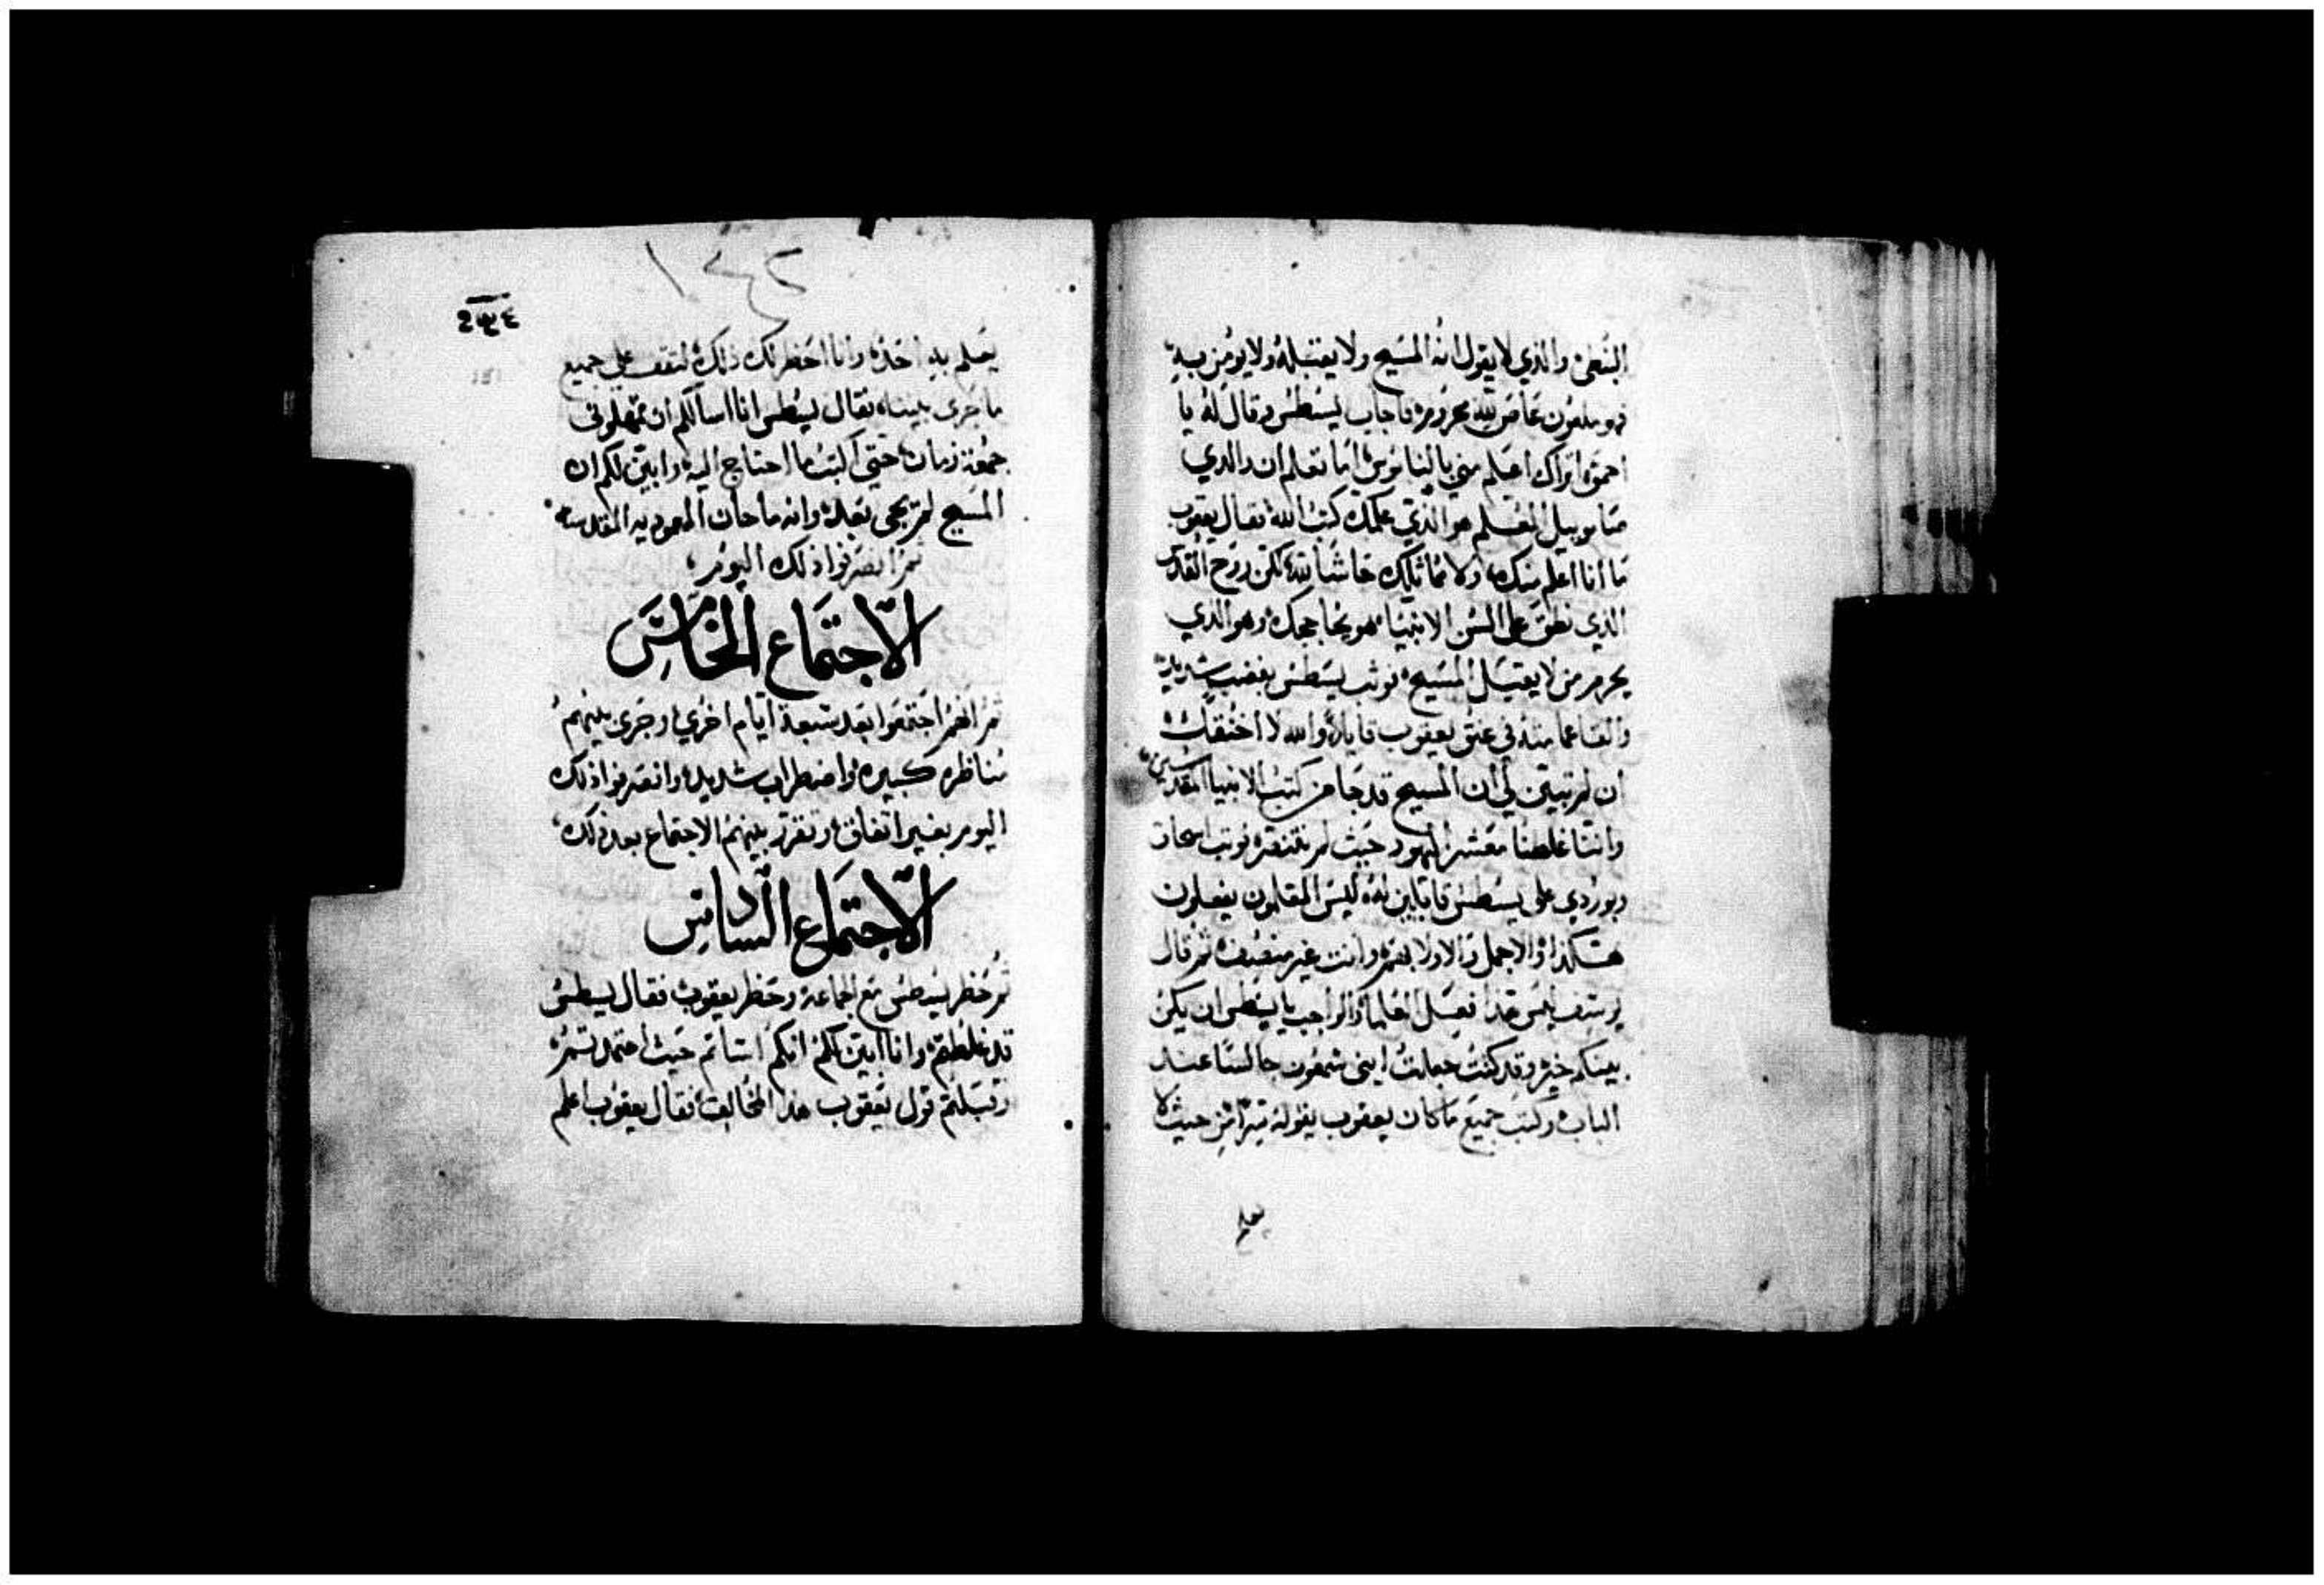 النبطى والذي لا يقول انه المسيح ولا يقتبله ولا يومن به
فهو ملعون عاص لله محروم فاجاب يسطس وقال له يا
احمق اتراك اعلم مني بالناموس اما تعلم ان والدي
صامويل المعلم هو الذي علمك كتب الله فقال يعقوب
ما انا اعلم منك ولا مماثلك حاشا لله لكن روح القدس
الذي نطق على السن الانبيا هو يحاججك وهو الذي
يحرم من لا يقتبل المسيح فوثب يسطس بغضب شديد
والقا عمامته في عنق يعقوب قايلا والله لاخنقنك
ان لم تبين لي ان المسيح قد جا من كتب الانبيا المقدسين
واننا غلطنا معشر اليهود حيث لم نتنصر فوثب اسحاق
وبوردي على يسطس قايلين له ليس المعلمون يفعلون
هكذا والاجمل والاولا بهم وانت غير منصف ثم قال
يوسف ليس هذا فعل العلما والواجب يا يسطس ان يكن
بينكم خير وقد كنت جعلت ابني شمعون جالسا عند
الباب وكتب جميع ما كان يعقوب يقوله من حيث لا
يعلم
١٤٢
يعلم به احد وانا احضر لك ذلك لتقف على جميع
ما جرى بيننا فقال يسطس انا اسالكم ان تمهلونى
جمعة زمان حتى اكتب ما احتاج اليه وابين لكم ان
المسيح لم يجى بعد وانه ما حان المعمودية المقدسة
ثم انصرفوا ذلك اليوم
الاجتماع الخامس
ثم انهم اجتمعوا بعد سبعة ايام اخري وجرى بينهم
مناظره كبيره واضطراب شديد وانصرفوا ذلك
اليوم بغير اتفاق وتقرر بينهم الاجتماع بعد ذلك
الاجتماع السادس
ثم حظر يسطس مع الجماعة وحظر يعقوب فقال يسطس
قد غلطتم وانا ابين لكم انكم اسأتم حيث اعتمدتم
وقبلتم قول يعقوب هذا المخالف فقال يعقوب اعلم